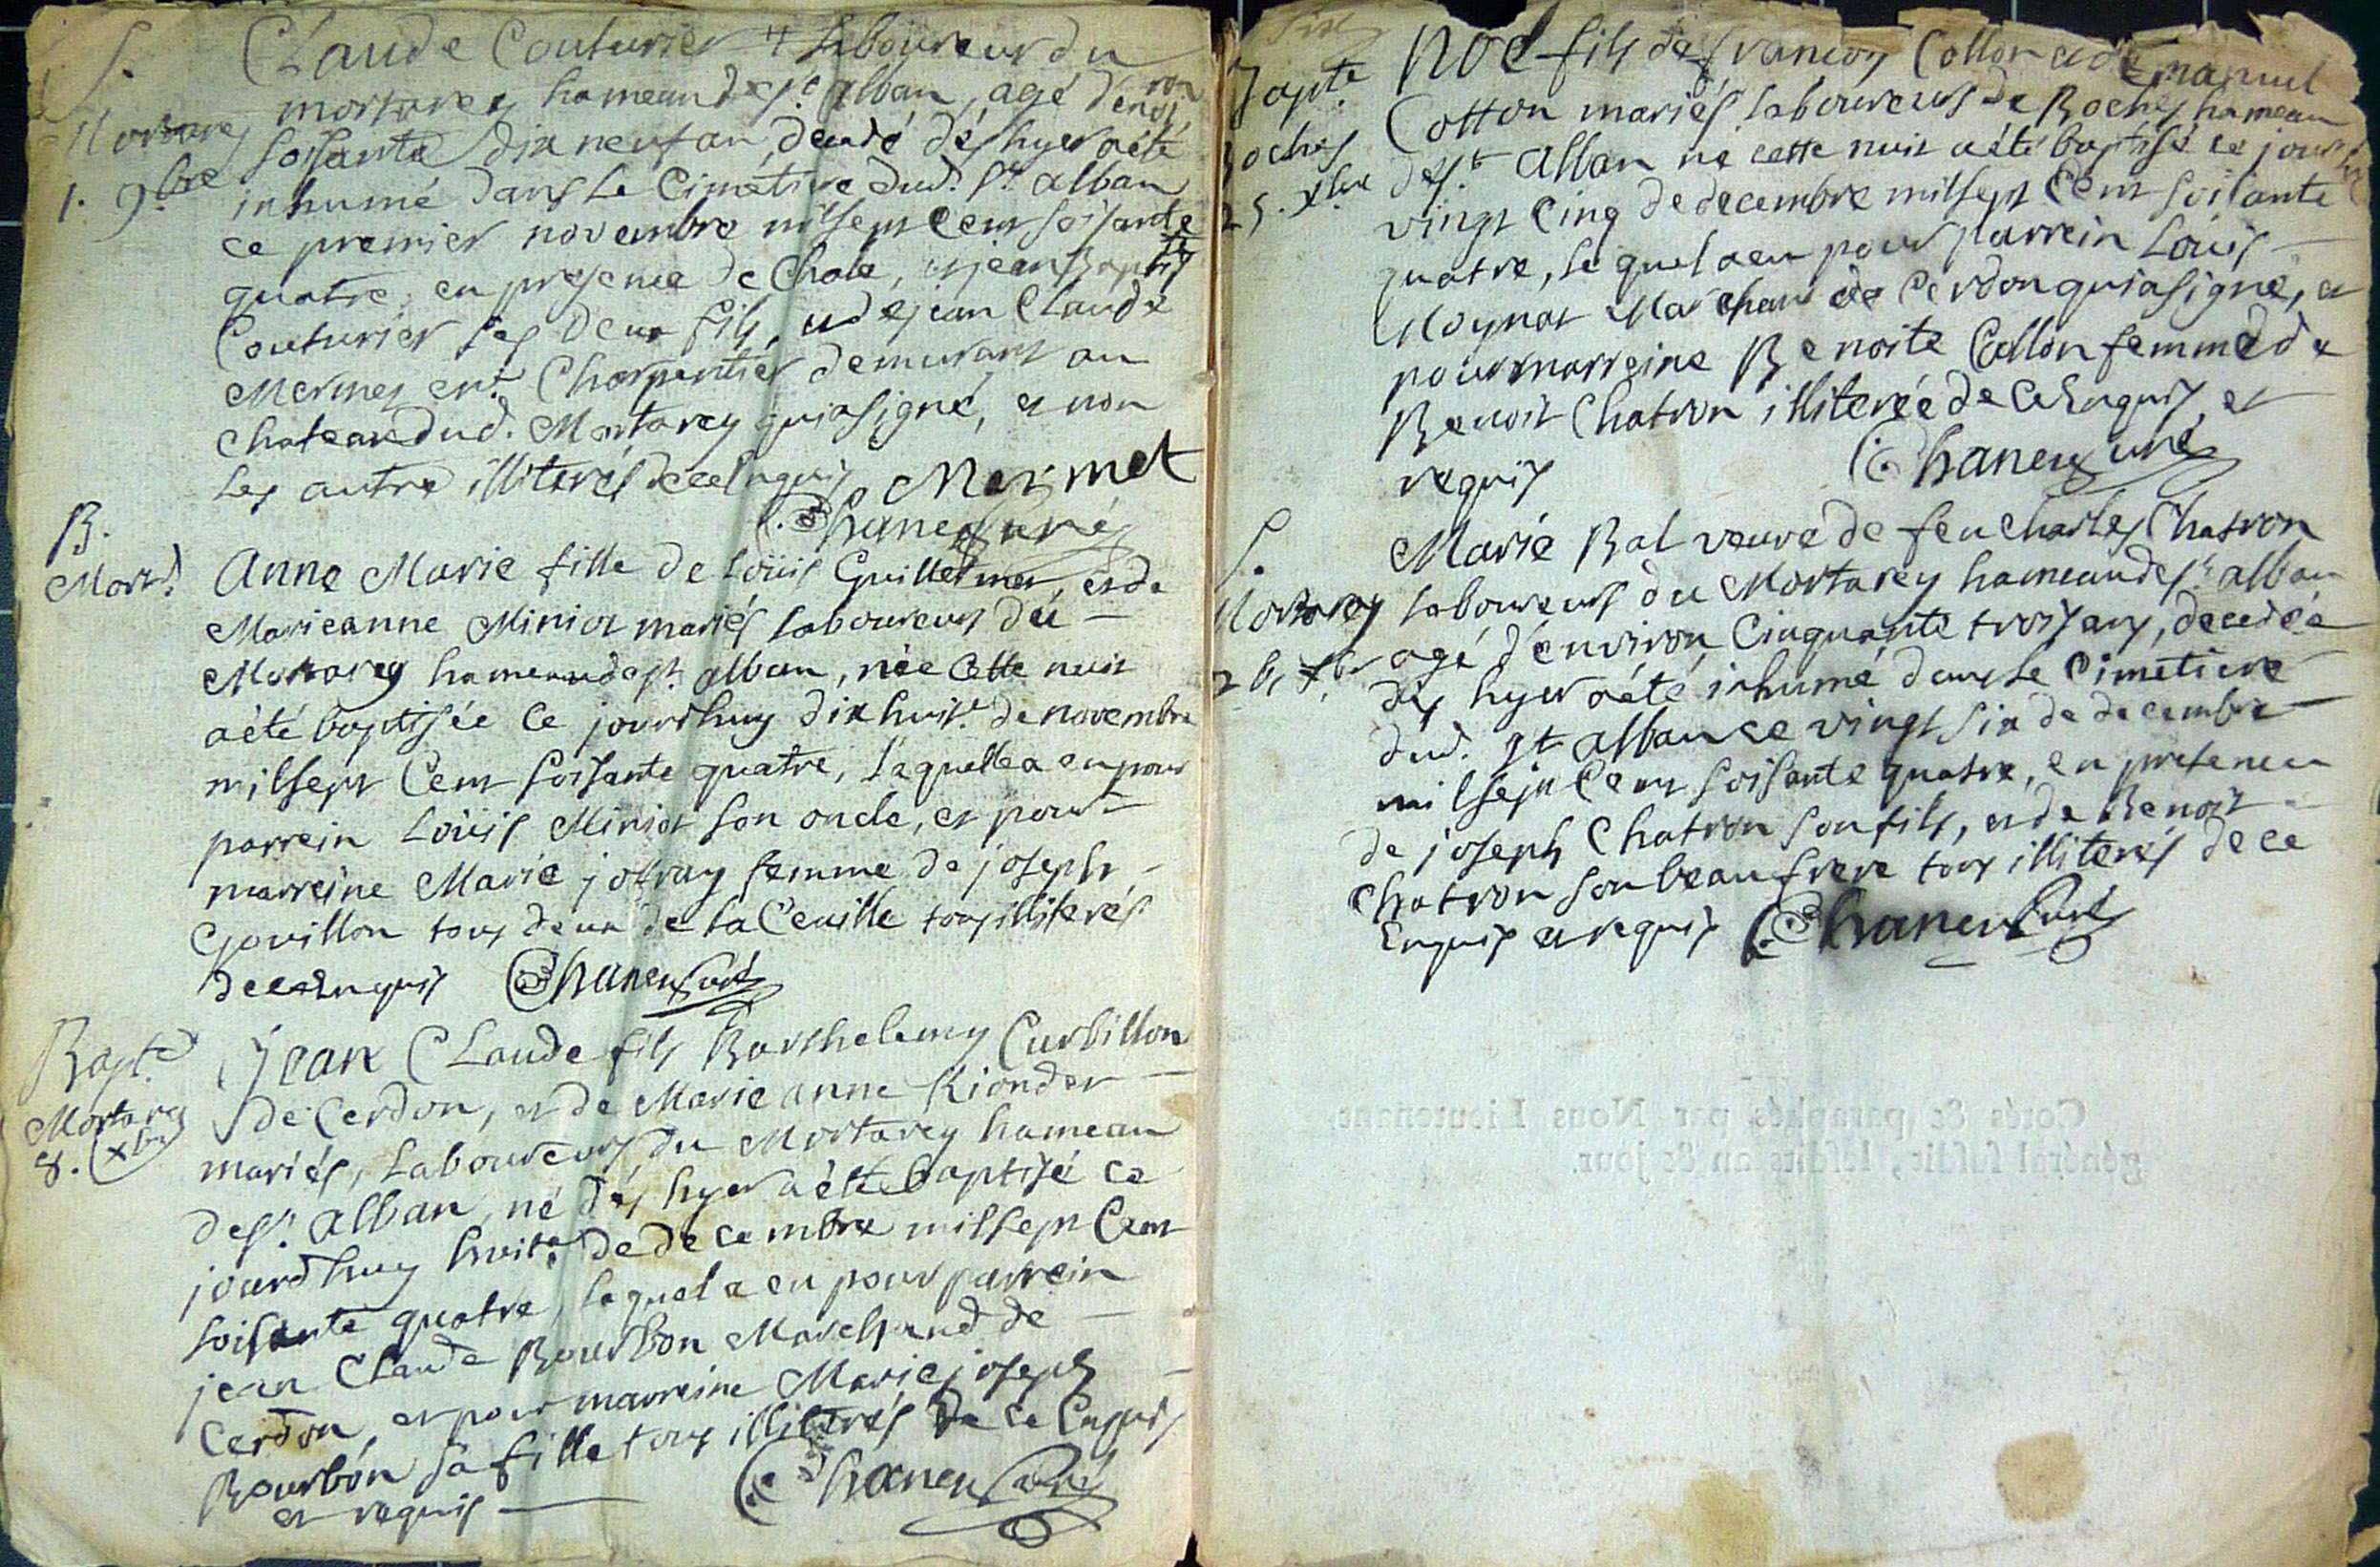 S.
Mortarey
1. 9.bre
Claude Couturier laboureur du
mortarey hameau de St. alban, agé d'envi
ron
soisante dix neuf an, decedé dés hyer a été
inhumé dans le Cimetiere dud. St. alban
ce premier novembre mil sept Cent soisante
quatre, en presence de Chale, et jean Baptis
te
Couturier ses deux fils, et de jean Claude
Mermet Charpentier demurant au
chateau dud. Mortarey qui a signé, et non
les autre illiterés de ce Enquis Mermet
Chaneu Curé
B.
Mort.
Anne Marie fille de Loüis Guillermet et de
Marieanne Miniot mariés laboureurs du
Mortarey hameau de St. alban, née Cette nuit
a été baptisée ce jourdhuy dix huit.e de novembre
mil sept Cent soisante quatre, laquelle a eu pour
parrein Loüis Miniot son oncle, et pour
marreine Marie jofray femme de joseph
Gouillon tous deux de la Ceuille tous illiterés
de ce Enquis Chaneu Curé
Bapt.e
Mortarey
8. xbre
jean Claude fils Barthelemy Curbillon
de Cerdon, et de Marieanne Riondet
mariés, Laboureurs du Mortarey hameau
de St. alban, né dés hyer a été baptisé ce
jourdhuy huit.e de decembre mil sept Cent
soisante quatre, lequel a eu pour parrein
jean Claude Bourbon Marchand de
Cerdon, et pour marreine Marie joseph
Bourbon sa fille tous illiterés de ce Enquis
et requis Chaneu Curé
Bapt.e
Roches
25. xbre
Noel fils de francoy Collon et de Emanuel
Cotton mariés laboureurs de Roches hameau
de St. Alban né cette nuit a été baptisé ce jourdhuy
vingt Cinq de decembre mil sept Cent soisante
quatre, lequel a eu pour parrein Loüis
Moynat Marchand de Cerdon qui a signé, et
pour marreine Benoite Collon femme de
Benoit Chatron illiterée de ce Enquis, et
requis Chaneu Curé
S.
Mortarey
26. xbr
Marie Bal veuve de feu Charles Chatron
laboureurs du Mortarey hameau de St. alban
agé d'environ Cinquante trois ans, decedée
dés hyer a été inhumé dans le Cimetiere
dud. St alban ce vingt six de decembre
mil sept Cent soisante quatre, en presence
de joseph Chatron son fils, et de Benoit
Chatron son beau frere tous illiterés de ce
Enquis et requis Chaneu Curé
Cotés & paraphés par Nous Lieutenant
général susdit, lesdits an & jour.